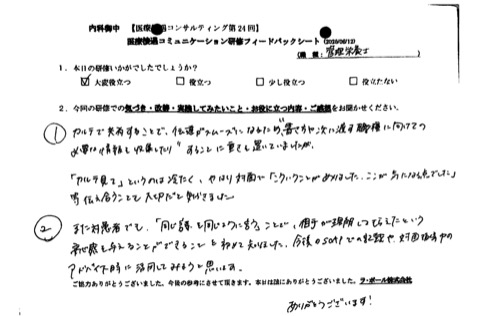 内科御中 【医療 コンサルティング第24回】
医療接遇コミュニケーション研修フィードバックシート (2025/06/12)
(職種: 管理栄養士 )
1. 本日の研修いかがでしたでしょうか?
☑ 大変役立つ □ 役立つ □ 少し役立つ □ 役立たない
2. 今回の研修での気づき・改善・実践してみたいこと・お役に立つ内容・ご感想をお聞かせください。
① カルテで共有することで、伝達がスムーズになるため、 次に渡す職種に向けての
必要な情報を収集したりすることに重きを置いていましたが、
「カルテ見て」というのは冷たく、やはり対面で「 ということがありました。ここが気になる点でした」
等伝え合うことも大切だと気づきました。
② また対患者でも、「同じ言葉を同じように言う」ことで、相手が理解してもらえたという
安心感を与えることができることを初めて知りました。今後のSOAPでの記録や、対面 の
アドバイス時に活用してみようと思います。
ご協力ありがとうございました。今後の参考にさせて頂きます。本日は誠にありがとうございました。ラ・ポール株式会社
ありがとうございます!